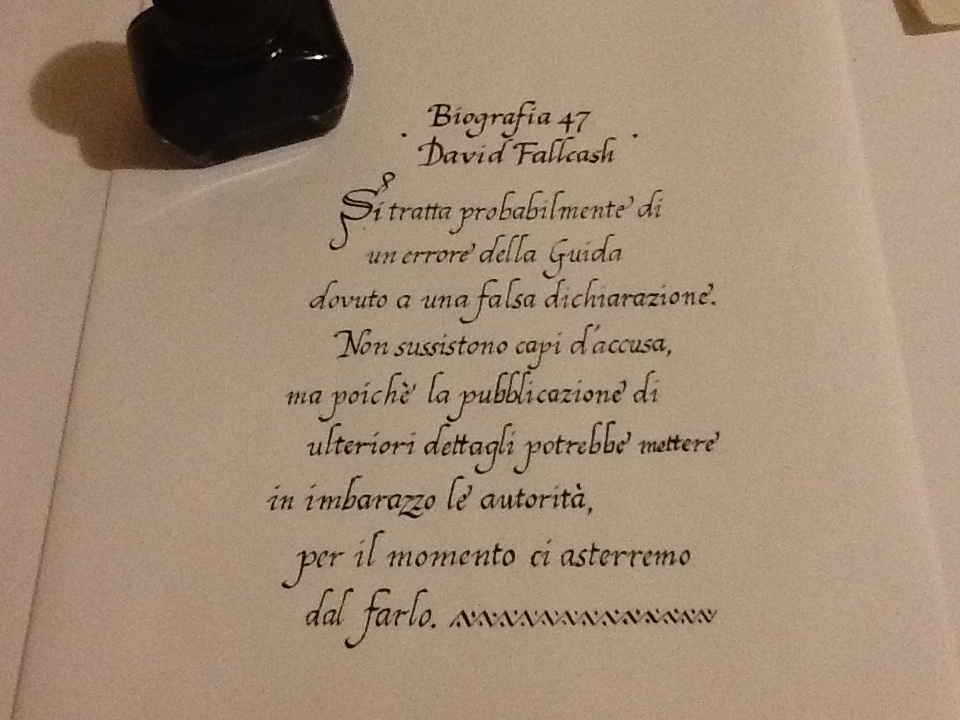 Biografia 47
· David Fallcash ·
Si tratta probabilmente di
un errore della Guida
dovuto a una falsa dichiarazione.
Non sussistono capi d'accusa,
ma poichè la pubblicazione di
ulteriori dettagli potrebbe mettere
in imbarazzo le autorità,
per il momento ci asterremo
dal farlo.